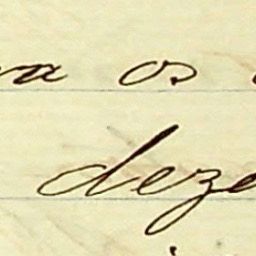 va os
deze